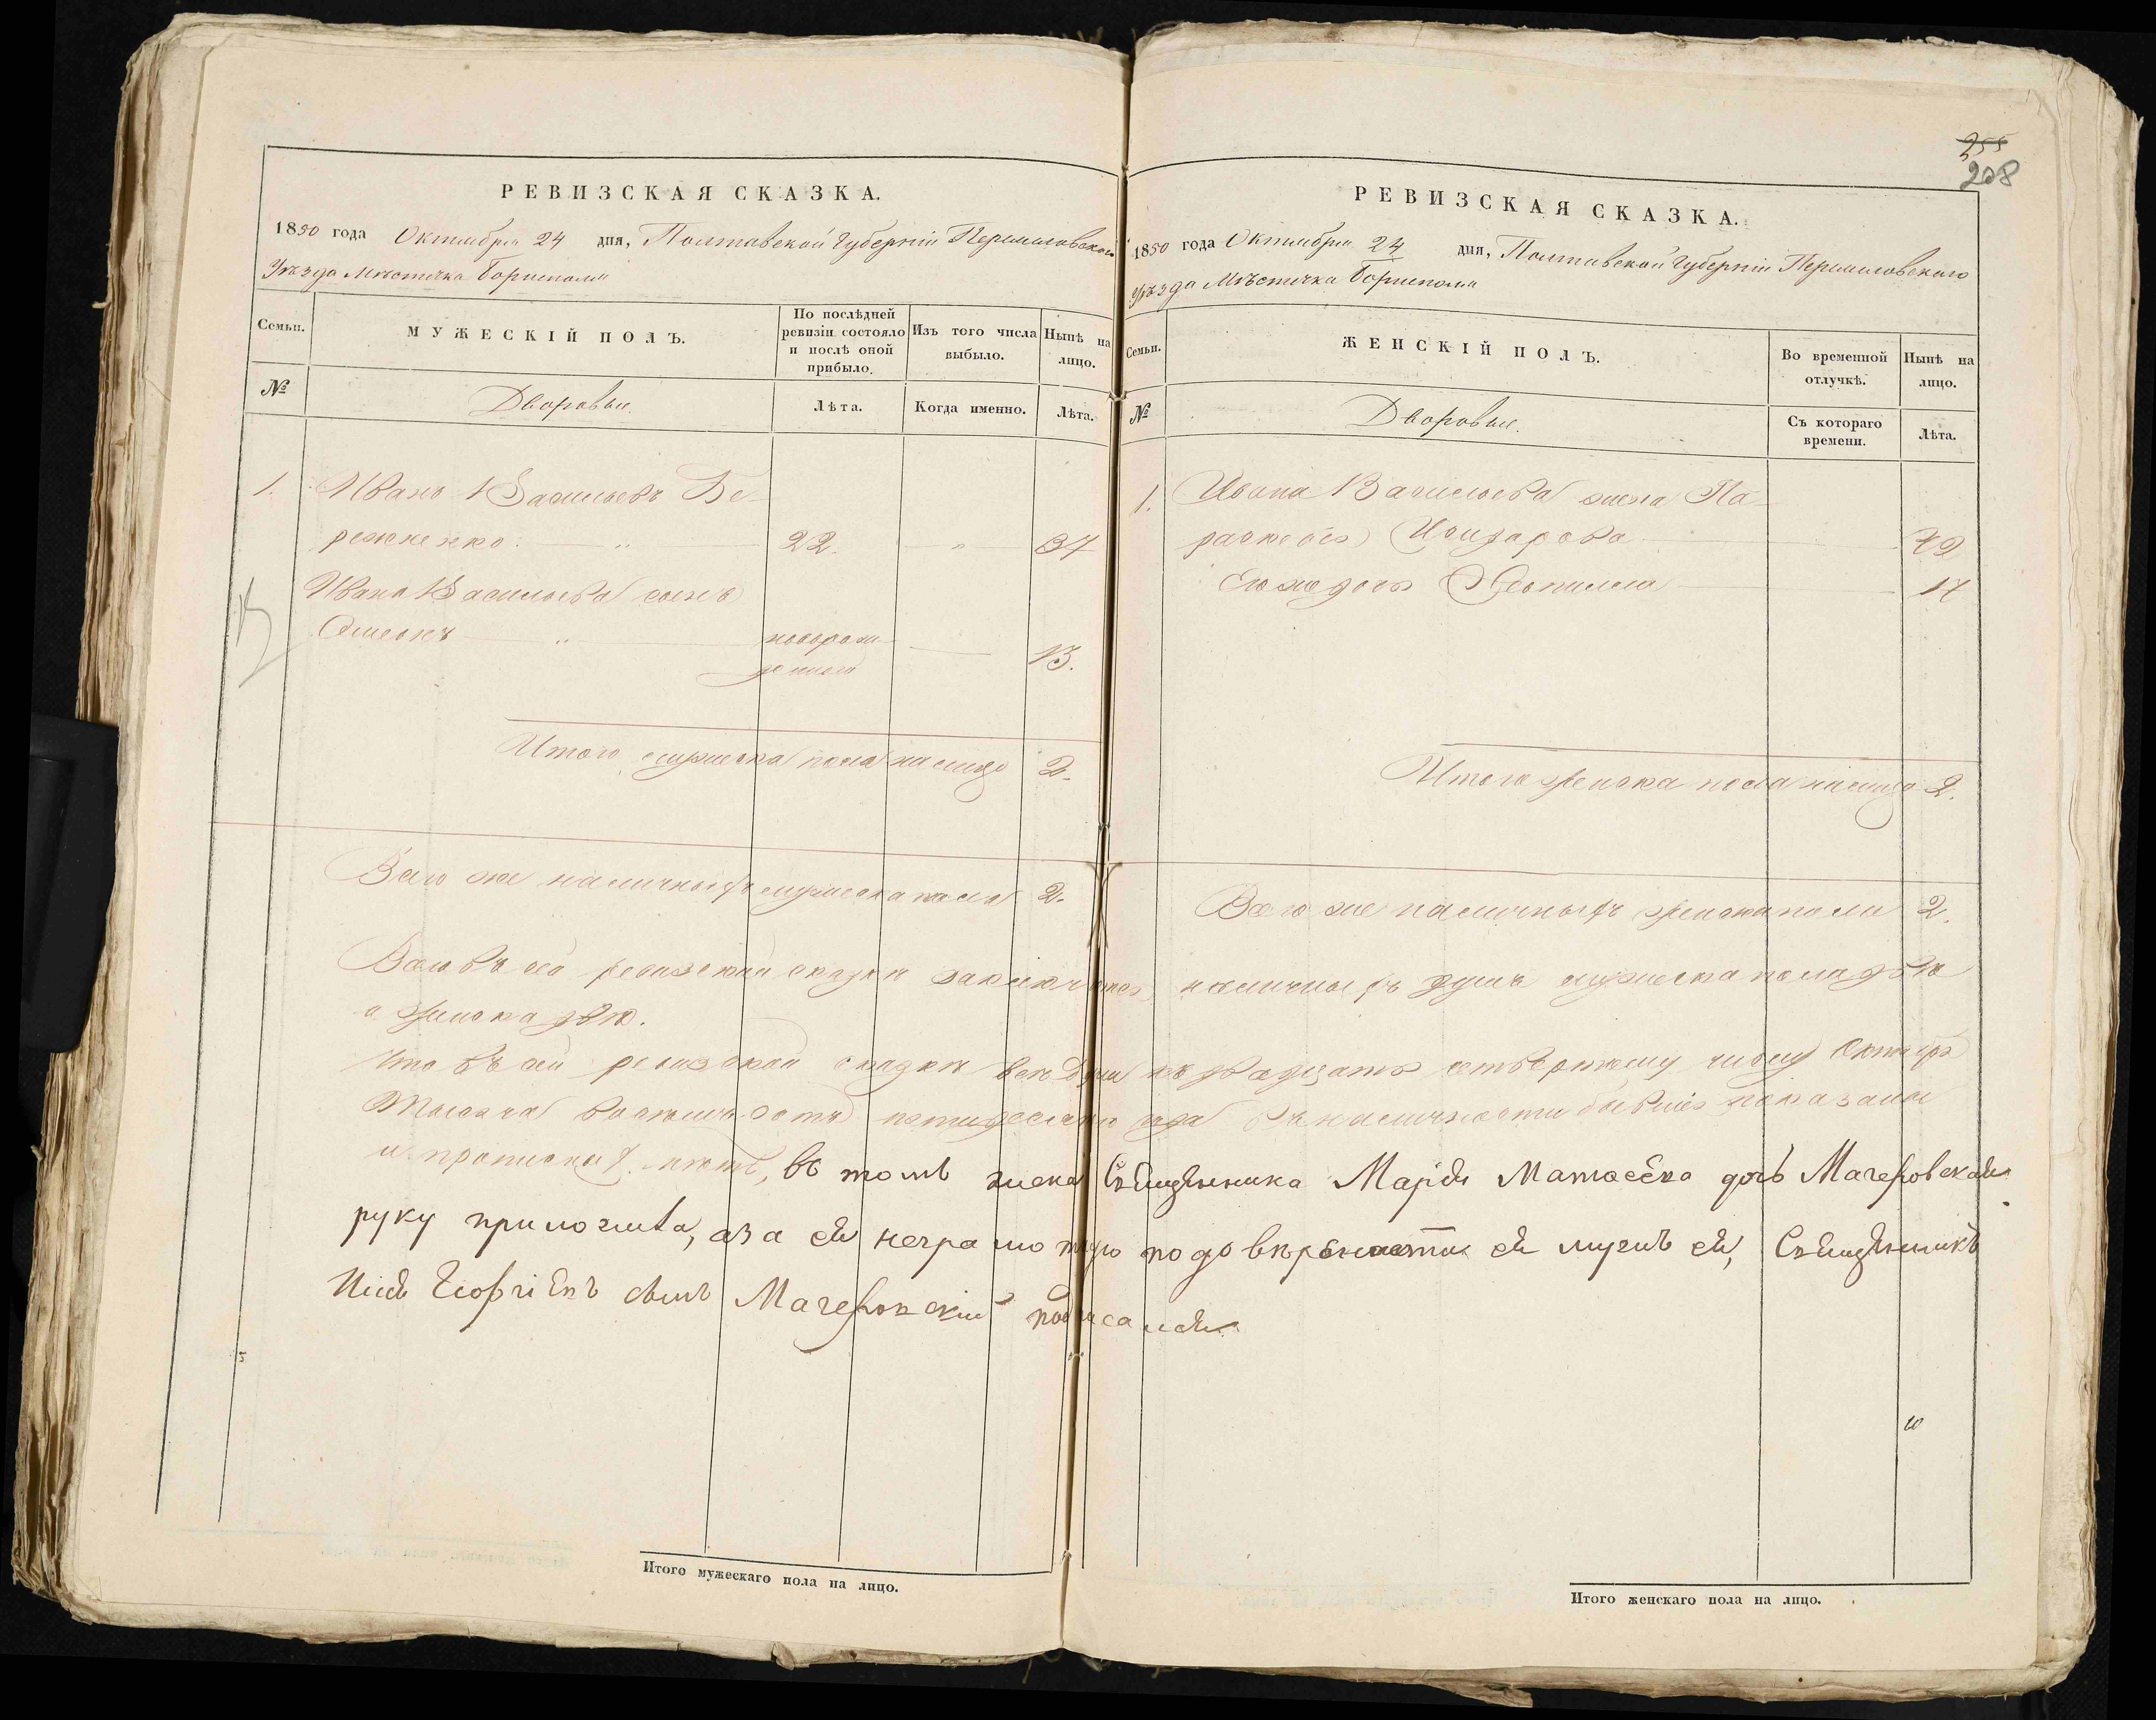 255
208
РЕВИЗСКАЯ СКАЗКА.
1850 года Октября 24 дня, Полтавской Губерніи Переяловского
Уѣзда Мѣстечка Борисполя
Семьи.
МУЖЕСКІЙ ПОЛЪ.
По послѣдней ревизіи состояло и послѣ оной прибыло.
Изъ того числа выбыло.
Нынѣ на лицо.
№
Дворовые.
Лѣта.
Когда именно.
Лѣта.
1. Иванъ Васильевъ Бе-
реженко. 22. 37
Ивана Васильева сынъ
новорож-
денной 13.
Итого мужеска пола на лицо 2.
Всего же наличныхъ мужеска пола 2.
РЕВИЗСКАЯ СКАЗКА.
1850 года Октября 24 дня, Полтавской Губерніи Переяловского
Уѣзда Мѣстечка Борисполя
Семьи.
ЖЕНСКІЙ ПОЛЪ.
Во временной отлучкѣ.
Нынѣ на лицо.
№
Дворовые.
Съ котораго времени.
Лѣта.
1. Ивана Васильева жена Па-
раскевія
Его же дочь 17
Итого женска пола налицо 2.
Всего же наличныхъ женска пола 2.
Всего въ сей ревизской сказки заключается наличныхъ душъ мужеска пола двѣ
а женска двѣ.
Что въ сей ревизской сказки всѣ души къ двадцать четвертому числу Октября
Тысяча восемьсотъ пятидесятого года въ наличности бывшіе показаны
и прописныхъ нѣтъ, въ томъ жена Священника Марія Матвеева дочь Мачеровская
руку приложила, а за ея неграмотную по довѣренности ея мужъ ея, Священникъ
Георгіевъ сынъ Мачеровскій подписался
Итого мужескаго пола на лицо.
Итого женскаго пола на лицо.